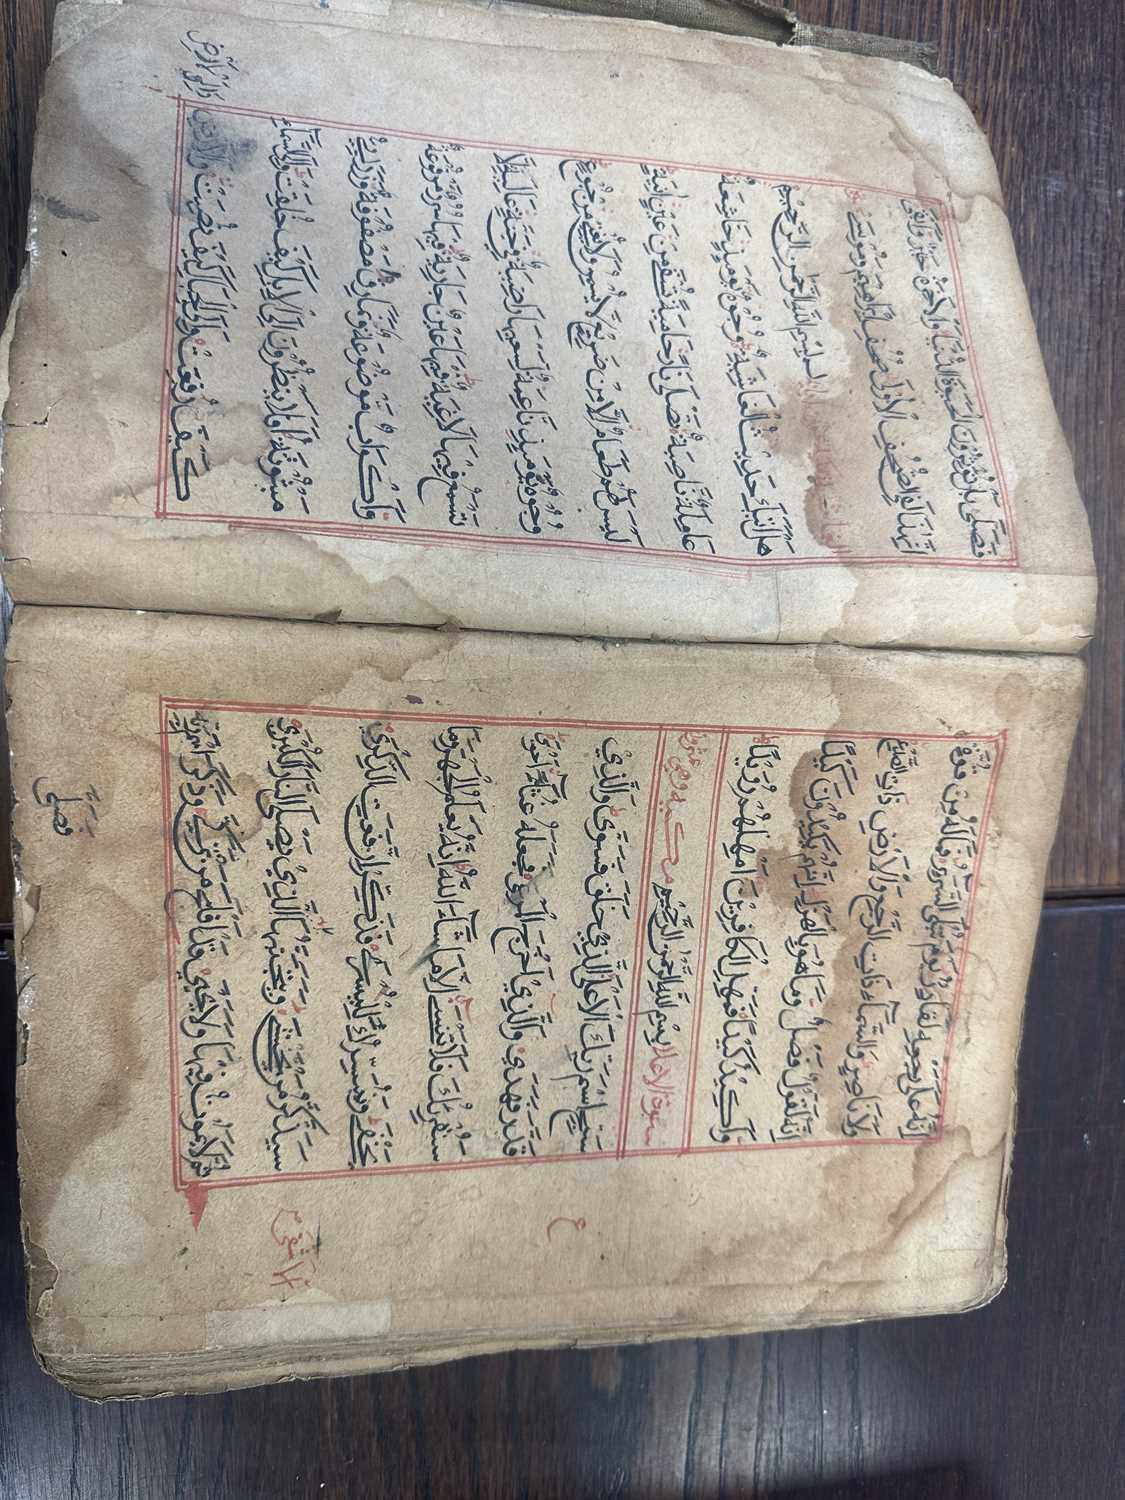 اِنَّهُ عَلٰى رَجْعِهٖ لَقَادِرٌ يَوْمَ تُبْلَى السَّرَآئِرُ فَمَا لَهُ مِنْ قُوَّةٍ
وَلَا نَاصِرٍ وَالسَّمَآءِ ذَاتِ الرَّجْعِ وَالْاَرْضِ ذَاتِ الصَّدْعِ
اِنَّهُ لَقَوْلٌ فَصْلٌ وَمَا هُوَ بِالْهَزْلِ اِنَّهُمْ يَكِيْدُوْنَ كَيْدًا
وَاَكِيْدُ كَيْدًا فَمَهِّلِ الْكَافِرِيْنَ اَمْهِلْهُمْ رُوَيْدًا
سورة الاعلا بِسْمِ اللّٰهِ الرَّحْمٰنِ الرَّحِيْمِ مكيه وهي
سَبِّحِ اسْمَ رَبِّكَ الْاَعْلَى الَّذِيْ خَلَقَ فَسَوّٰى وَالَّذِيْ
قَدَّرَ فَهَدٰى وَالَّذِيْ اَخْرَجَ الْمَرْعٰى فَجَعَلَهُ غُثَآءً اَحْوٰى
سَنُقْرِئُكَ فَلَا تَنْسٰى اِلَّا مَا شَآءَ اللّٰهُ اِنَّهُ يَعْلَمُ الْجَهْرَ وَمَا
يَخْفٰى وَنُيَسِّرُكَ لِلْيُسْرٰى فَذَكِّرْ اِنْ نَفَعَتِ الذِّكْرٰى
سَيَذَّكَّرُ مَنْ يَخْشٰى وَيَتَجَنَّبُهَا الَّذِيْ يَصْلَى النَّارَ الْكُبْرٰى
الاشقى
ثُمَّ لَا يَمُوْتُ فِيْهَا وَلَا يَحْيٰى قَدْ اَفْلَحَ مَنْ تَزَكّٰى وَذَكَرَ اسْمَ رَبِّهٖ
ع
فَصَلّٰى
فَصَلّٰى بَلْ تُؤْثِرُوْنَ الْحَيٰوةَ الدُّنْيَا وَالْاٰخِرَةُ خَيْرٌ وَاَبْقٰى
اِنَّ هٰذَا لَفِي الصُّحُفِ الْاُوْلٰى صُحُفِ اِبْرَاهِيْمَ وَمُوْسٰى
بِسْمِ اللّٰهِ الرَّحْمٰنِ الرَّحِيْمِ
هَلْ اَتٰيكَ حَدِيْثُ الْغَاشِيَةِ وُجُوْهٌ يَوْمَئِذٍ خَاشِعَةٌ
عَامِلَةٌ نَاصِبَةٌ تَصْلٰى نَارًا حَامِيَةً تُسْقٰى مِنْ عَيْنٍ اٰنِيَةٍ
لَيْسَ لَهُمْ طَعَامٌ اِلَّا مِنْ ضَرِيْعٍ لَا يُسْمِنُ وَلَا يُغْنِيْ مِنْ جُوْعٍ
وُجُوْهٌ يَوْمَئِذٍ نَاعِمَةٌ لِسَعْيِهَا رَاضِيَةٌ فِيْ جَنَّةٍ عَالِيَةٍ لَا
تَسْمَعُ فِيْهَا لَاغِيَةً فِيْهَا عَيْنٌ جَارِيَةٌ فِيْهَا سُرُرٌ مَرْفُوْعَةٌ
وَاَكْوَابٌ مَوْضُوْعَةٌ وَنَمَارِقُ مَصْفُوْفَةٌ وَزَرَابِيُّ
مَبْثُوْثَةٌ اَفَلَا يَنْظُرُوْنَ اِلَى الْاِبِلِ كَيْفَ خُلِقَتْ وَاِلَى السَّمَآءِ
كَيْفَ رُفِعَتْ وَاِلَى الْجِبَالِ كَيْفَ نُصِبَتْ وَاِلَى الْاَرْضِ
وَاِلَى الْاَرْضِ